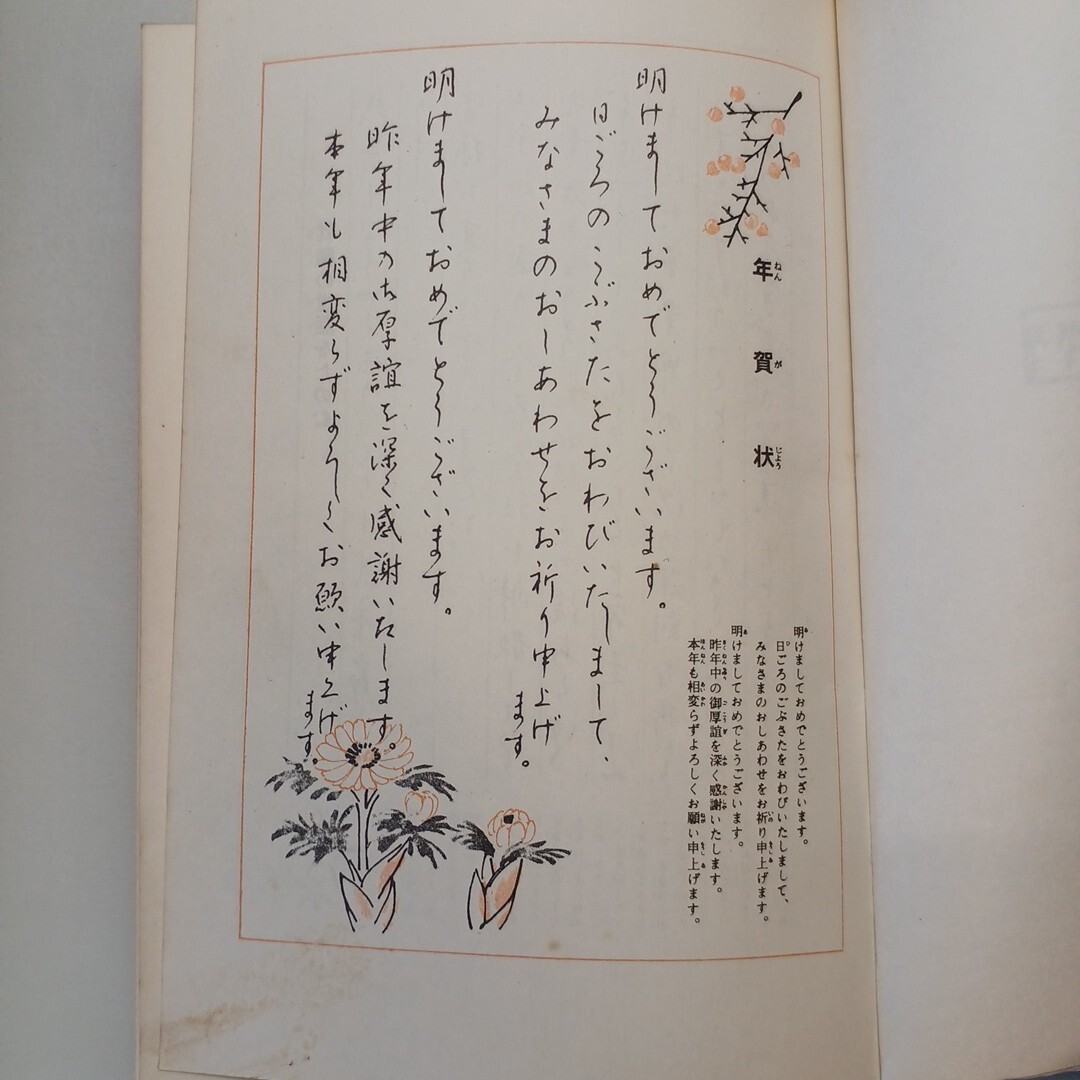 年賀状
ねんがじょう
明けましておめでとうございます。
日ごろのごぶさたをおわびいたしまして、
みなさまのおしあわせをお祈り申上げます。
明けましておめでとうございます。
昨年中の御厚誼を深く感謝いたします。
本年も相変らずよろしくお願い申上げます。
明けましておめでとうございます。
日ごろのごぶさたをおわびいたしまして、
みなさまのおしあわせをお祈り申上げ
ます。
明けましておめでとうございます。
昨年中の御厚誼を深く感謝いたします。
本年も相変らずよろしくお願い申上げ
ます。